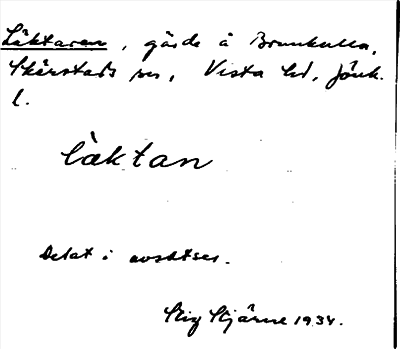 Läktaren, gärde å Brunkulla,
Skärstads sn, Vista hd, Jönk.
l.
läktan
Delat i avsatser.
Stig Stjärne 1934.